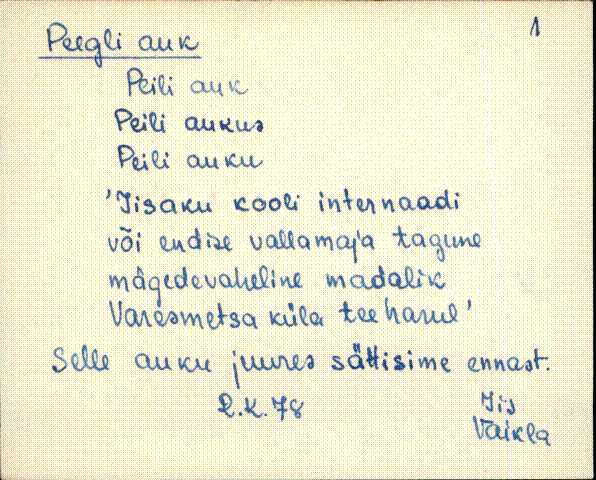 1
Peegli auk
Peili auk
Peili aukus
Peili auku
'Iisaku kooli internaadi
või endise vallamaja tagune
mägedevaheline madalik
Varesmetsa küla tee harul'
Selle auku juures sättisime ennast.
R.K.78
Iis
Vaikla